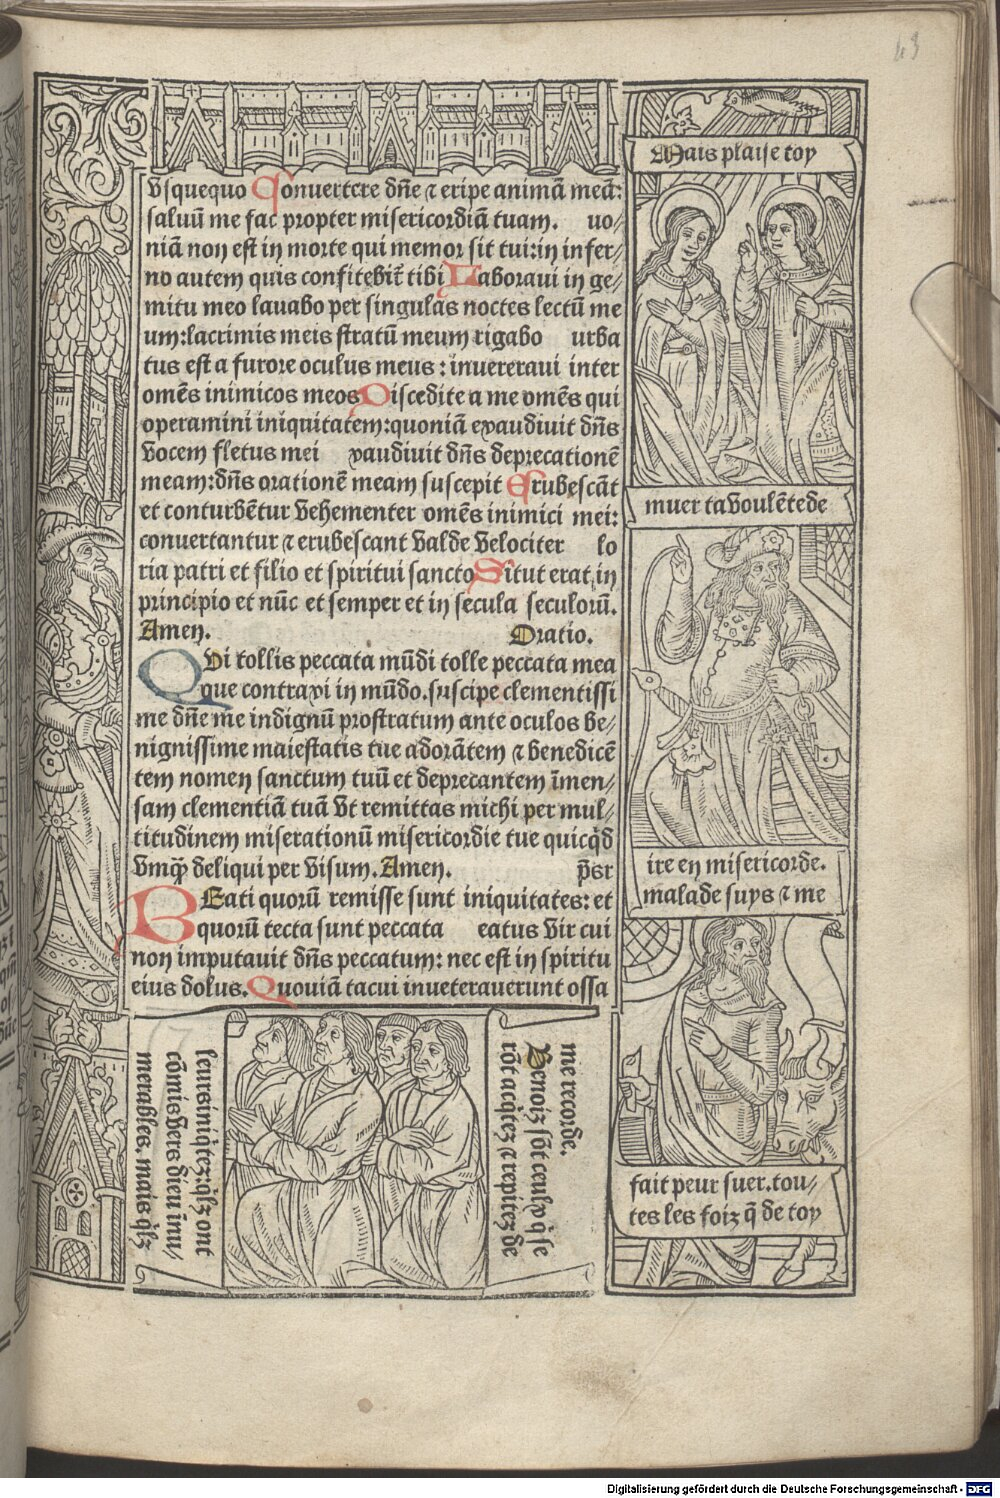 43
Usquequo Convertere dñe ⁊ eripe animã meã:
saluũ me fac propter misericordiã tuam. uo⸗
niã non est in morte qui memor sit tui:in infer⸗
no autem quis confitebit̃ tibi Laboraui in ge⸗
mitu meo lauabo per singulas noctes lectũ me
um:lacrimis meis stratũ meum rigabo urba
tus est a furore oculus meus : inueteraui inter
omẽs inimicos meos Discedite a me omẽs qui
operamini iniquitatem:quoniã exaudiuit dñs
vocem fletus mei xaudiuit dñs deprecationẽ
meam:dñs orationẽ meam suscepit Erubescãt
et conturbẽtur vehementer omẽs inimici mei:
conuertantur ⁊ erubescant valde velociter lo
ria patri et filio et spiritui sancto Sicut erat in
principio et nũc et semper et in secula seculorũ.
Amen. Oratio.
QVi tollis peccata mũdi tolle peccata mea
que contraxi in mũdo.suscipe clementissi
me dñe me indignũ prostratum ante oculos be⸗
nignissime maiestatis tue adorãtem ⁊ benedicẽ
tem nomen sanctum tuũ et deprecantem ĩmen⸗
sam clementiã tuã vt remittas michi per mul⸗
titudinem miserationũ misericordie tue quicq̃d
vmq̃ deliqui per visum. Amen. p̃s
BEati quorũ remisse sunt iniquitates: et
quorũ tecta sunt peccata eatus vir cui
non imputauit dñs peccatum: nec est in spiritu
eius dolus. Quoniã tacui inueterauerunt ossa
Mais plaise toy
muer ta voulẽte de
ire en misericorde.
malade suys ⁊ me
fait peur suer.tou⸗
tes les foiz q̃ de toy
me recorde.
Benoiz sõt ceulx q̃ se
rõt acq̃tez ⁊ respitez de
leurs iniq̃tez: q̃lz ont
cõmis vers dieu ĩnu⸗
merables. mais q̃lz
Digitalisierung gefördert durch die Deutsche Forschungsgemeinschaft - DFG